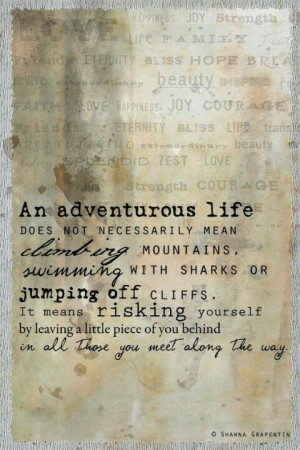 HAPPINESS JOY Strength
LIFE FAMILY
Friends ETERNITY BLISS HOPE BREA
extraordinary beauty INSPIRE
FAITH LOVE HAPPINESS JOY COURAGE
Friends ETERNITY BLISS LIFE
extraordinary beauty
SPLENDID ZEST LOVE
JOY Strength COURAGE
An adventurous life
DOES NOT NECESSARILY MEAN
climbing MOUNTAINS,
swimming WITH SHARKS OR
jumping off CLIFFS.
It means risking yourself
by leaving a little piece of you behind
in all those you meet along the way.
© SHAWNA GRAPENTIN